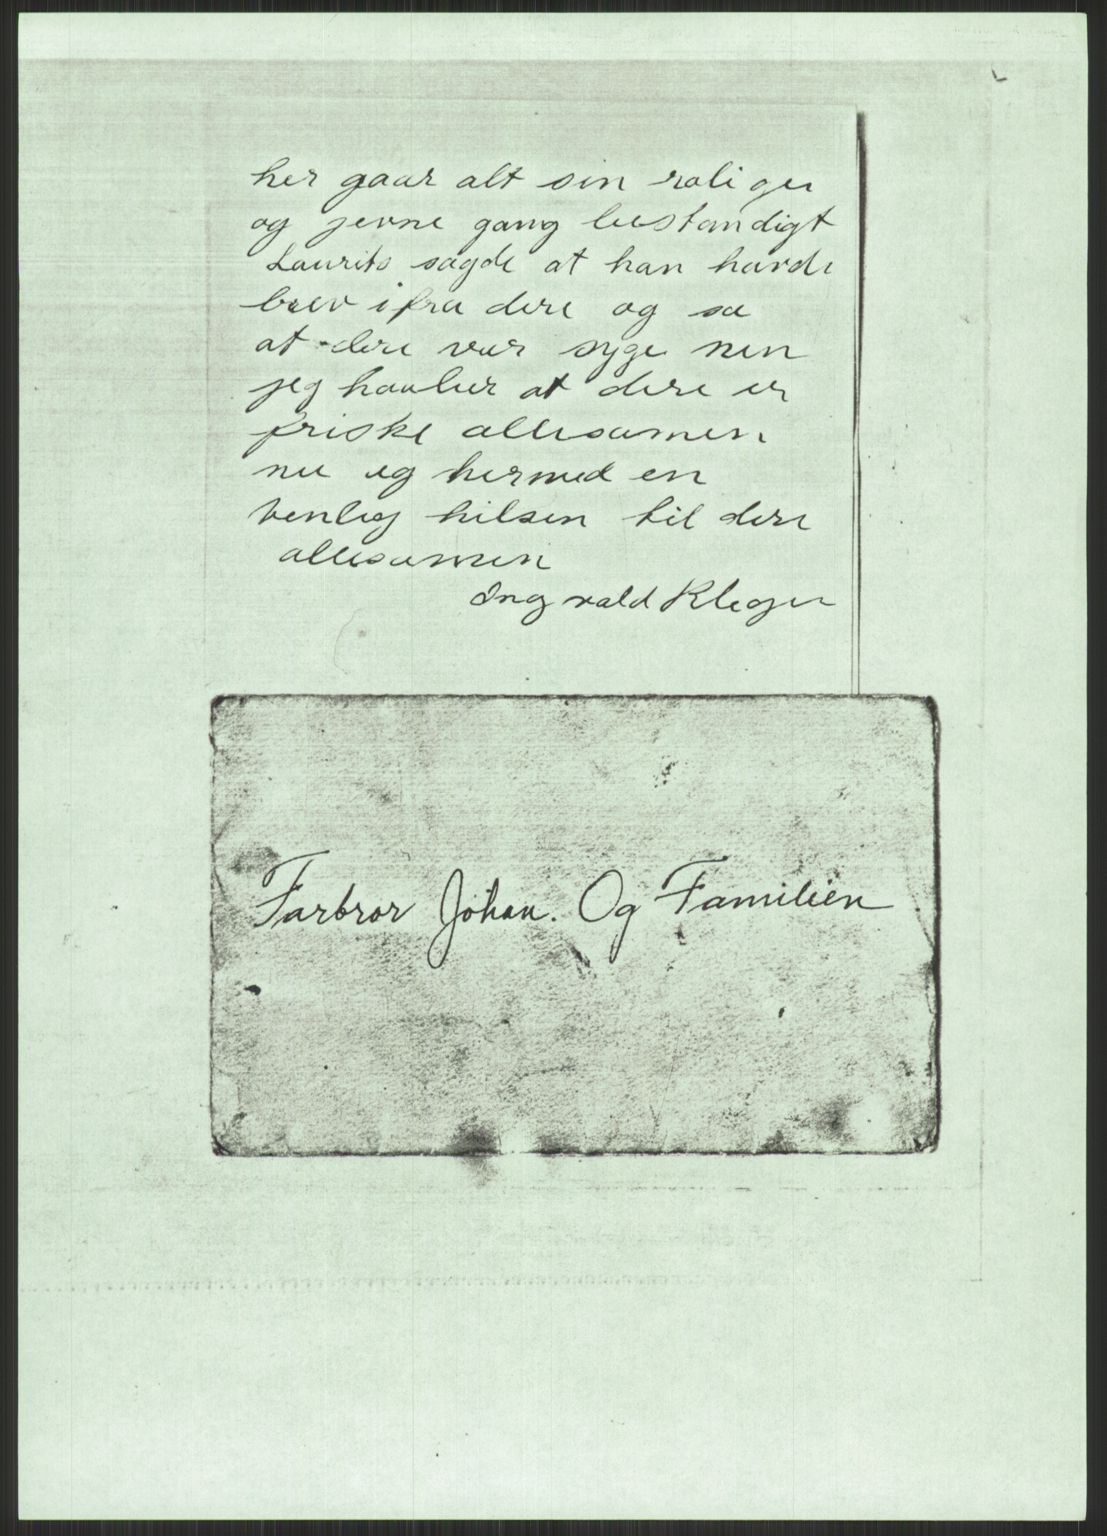 her gaar alt sin rolige
og jevne gang bestandigt
Laurits sagde at han havde
brev ifra dere og sa
at dere var syge men
jeg haaber at dere er
friske allesamen
nu og hermed en
venlig hilsen til dere
allesamen
Ingvald Kleger
Farbror Johan. Og Familien